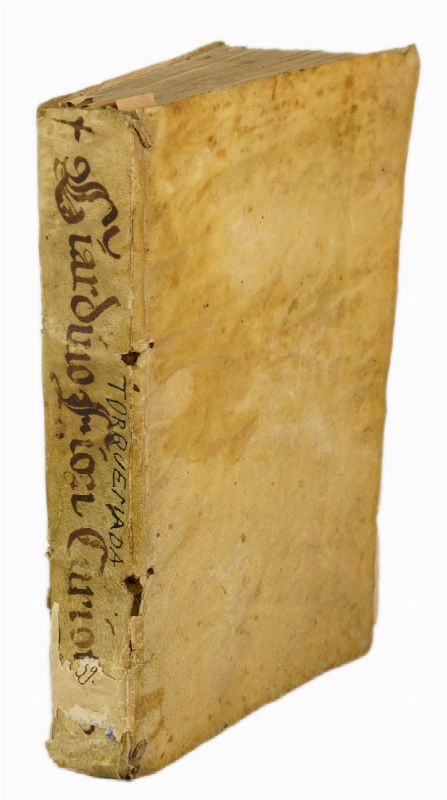 + Giardino Fiori Curio
TORQUEMADA
59.